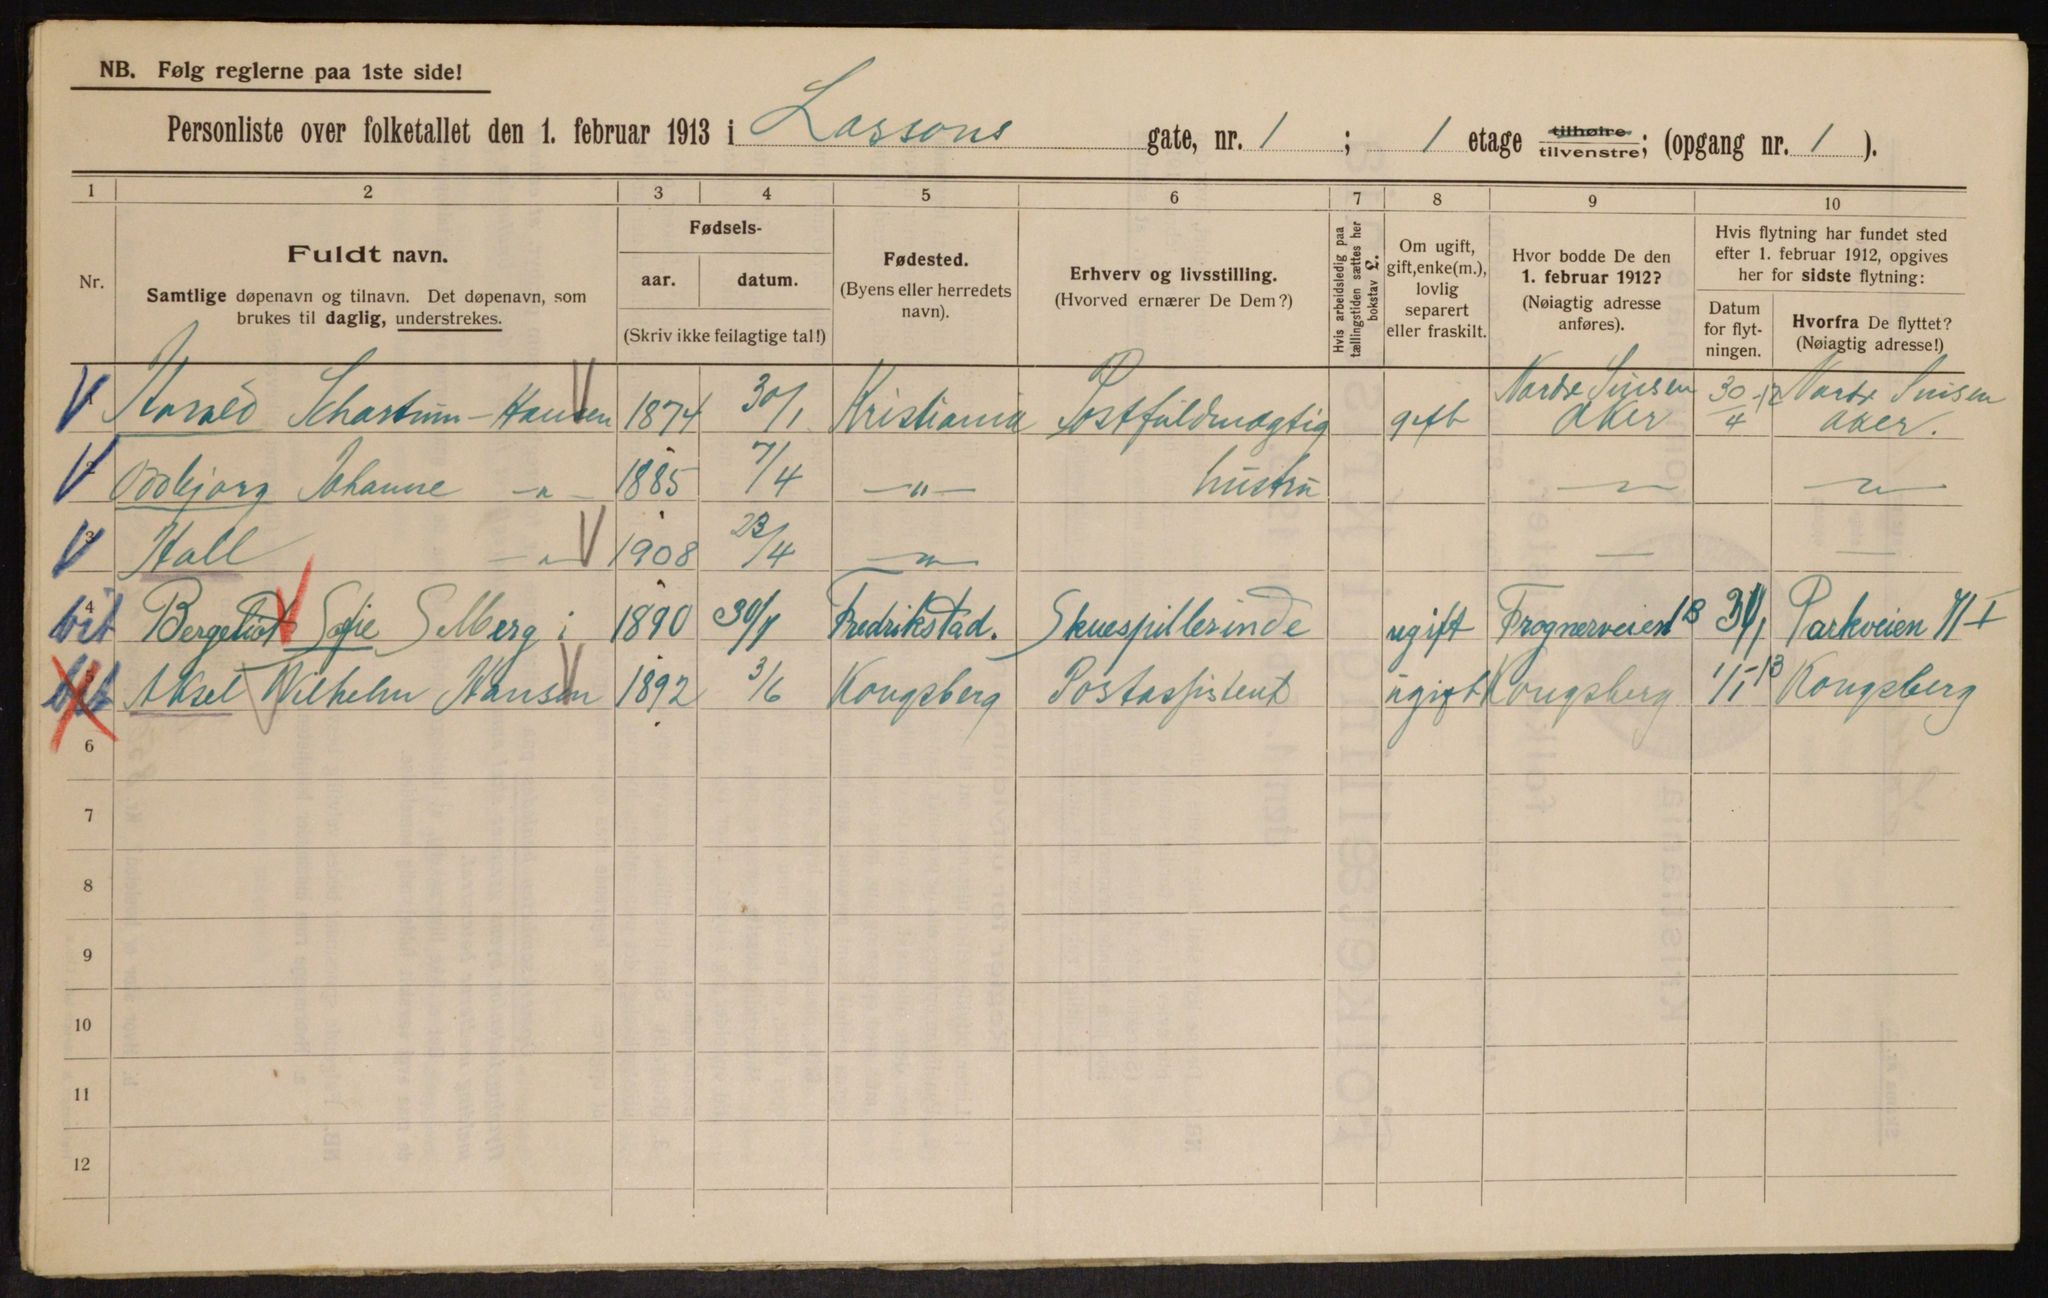 NB. Følg reglerne paa 1ste side!
Personliste over folketallet den 1. februar 1913 i Lassons gate, nr. 1 ; 1 etage tilhøire tilvenstre; (opgang nr. 1 ).
1 2 3 4 5 6 7 8 9 10
Nr.
Fuldt navn.
Samtlige døpenavn og tilnavn. Det døpenavn, som
brukes til daglig, understrekes.
Fødsels-
aar. datum.
(Skriv ikke feilagtige tal!)
Fødested.
(Byens eller herredets
navn).
Erhverv og livsstilling.
(Hvorved ernærer De Dem?)
Hvis arbeidsledig paa
tællingstiden sættes her
bokstav £.
Om ugift,
gift,enke(m.),
lovlig
separert
eller fraskilt.
Hvor bodde De den
1. februar 1912?
(Nøiagtig adresse
anføres).
Hvis flytning har fundet sted
efter 1. februar 1912, opgives
her for sidste flytning:
Datum
for flyt-
ningen.
Hvorfra De flyttet?
(Nøiagtig adresse!)
Schartum-Hansen 1874 30/1 Kristiania Postfuldmægtig gift Nordre Sinsen Aker 30/4-12 Nordre Sinsen Aker.
2 Oddbjørg Johanne -"- 1885 7/4 -"- hustru -"- -"-
3 Hall -"- 1908 23/4 -"- — —
4 Bergeliot Sofie Selberg 1890 30/7 Fredrikstad. Skuespillerinde ugift Frognerveien 18 Parkveien 71 I
5 Aksel Vilhelm Hansen 1892 3/6 Kongsberg Postassistent ugift Kongsberg 1/1-13 Kongsberg
6
7
8
9
10
11
12